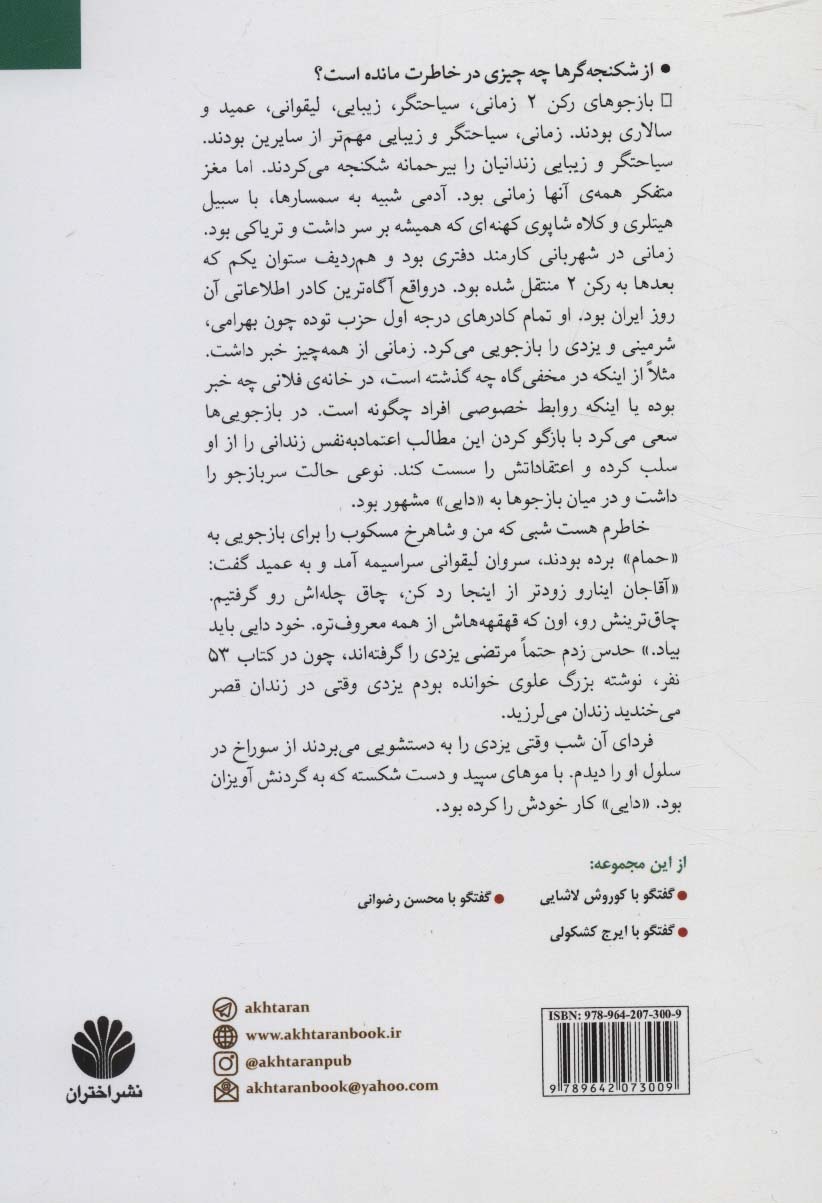 ● از شکنجه‌گرها چه چیزی در خاطرت مانده است؟
□ بازجوهای رکن ۲ زمانی، سیاحتگر، زیبایی، لیقوانی، عمید و
سالاری بودند. زمانی، سیاحتگر و زیبایی مهم‌تر از سایرین بودند.
سیاحتگر و زیبایی زندانیان را بیرحمانه شکنجه می‌کردند. اما مغز
متفکر همه‌ی آنها زمانی بود. آدمی شبیه به سمسارها، با سبیل
هیتلری و کلاه شاپوی کهنه‌ای که همیشه بر سر داشت و تریاکی بود.
زمانی در شهربانی کارمند دفتری بود و هم‌ردیف ستوان یکم که
بعدها به رکن ۲ منتقل شده بود. درواقع آگاه‌ترین کادر اطلاعاتی آن
روز ایران بود. او تمام کادرهای درجه اول حزب توده چون بهرامی،
شرمینی و یزدی را بازجویی می‌کرد. زمانی از همه‌چیز خبر داشت.
مثلاً از اینکه در مخفی‌گاه چه گذشته است، در خانه‌ی فلانی چه خبر
بوده یا اینکه روابط خصوصی افراد چگونه است. در بازجویی‌ها
سعی می‌کرد با بازگو کردن این مطالب اعتمادبه‌نفس زندانی را از او
سلب کرده و اعتقاداتش را سست کند. نوعی حالت سربازجو را
داشت و در میان بازجوها به «دایی» مشهور بود.
خاطرم هست شبی که من و شاهرخ مسکوب را برای بازجویی به
«حمام» برده بودند، سروان لیقوانی سراسیمه آمد و به عمید گفت:
«آقاجان اینارو زودتر از اینجا رد کن، چاق چله‌اش رو گرفتیم.
چاق‌ترینش رو، اون که قهقهه‌هاش از همه معروف‌تره. خود دایی باید
بیاد.» حدس زدم حتماً مرتضی یزدی را گرفته‌اند، چون در کتاب ۵۳
نفر، نوشته بزرگ علوی خوانده بودم یزدی وقتی در زندان قصر
می‌خندید زندان می‌لرزید.
فردای آن شب وقتی یزدی را به دستشویی می‌بردند از سوراخ در
سلول او را دیدم. با موهای سپید و دست شکسته که به گردنش آویزان
بود. «دایی» کار خودش را کرده بود.
از این مجموعه:
● گفتگو با کوروش لاشایی ● گفتگو با محسن رضوانی
● گفتگو با ایرج کشکولی
akhtaran
www.akhtaranbook.ir
@akhtaranpub
akhtaranbook@yahoo.com
نشر اختران
ISBN: 978-964-207-300-9
9 789642 073009